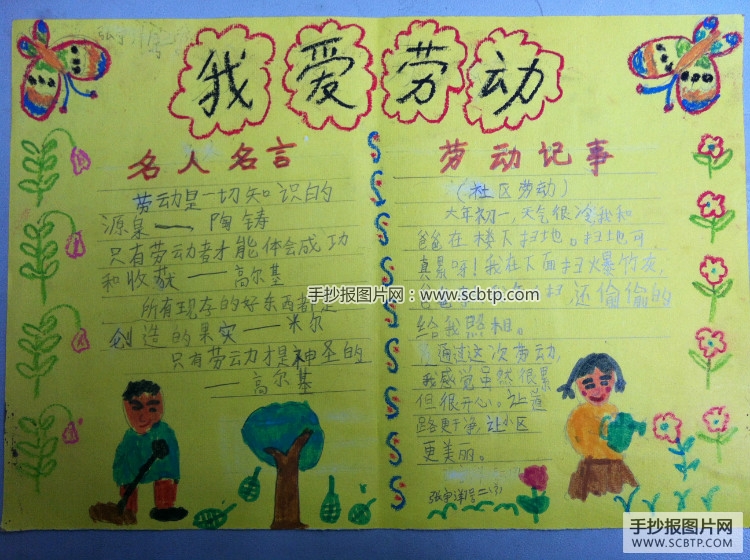 我爱劳动
名人名言
劳动是一切知识的
源泉——陶铸
只有劳动者才能体会成功
和收获——高尔基
所有现在的好东西都是
创造的果实——米尔
只有劳动力才是神圣的
——高尔基
劳动记事
（社区劳动）
大年初一，天气很冷我和
爸爸在楼下扫地。扫地可
真累呀！我在下面扫爆竹灰，
爸爸 扫 还偷偷的
给我照相。
通过这次劳动，
我感觉虽然很累
但很开心。让道
路更干净，让小区
更美丽。
手抄报图片网：www.scbtp.com
手抄报图片网
WWW.SCBTP.COM